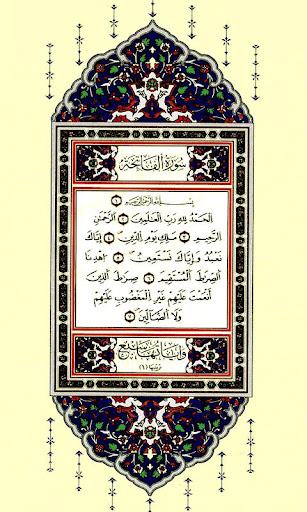 سورة الفاتحة
بسم الله الرحمن الرحيم ١
الحمد لله رب العالمين ٢ الرحمن
الرحيم ٣ ملك يوم الدين ٤ إياك
نعبد وإياك نستعين ٥ اهدنا
الصراط المستقيم ٦ صراط الذين
أنعمت عليهم غير المغضوب عليهم
ولا الضالين ٧
وآياتها سبع